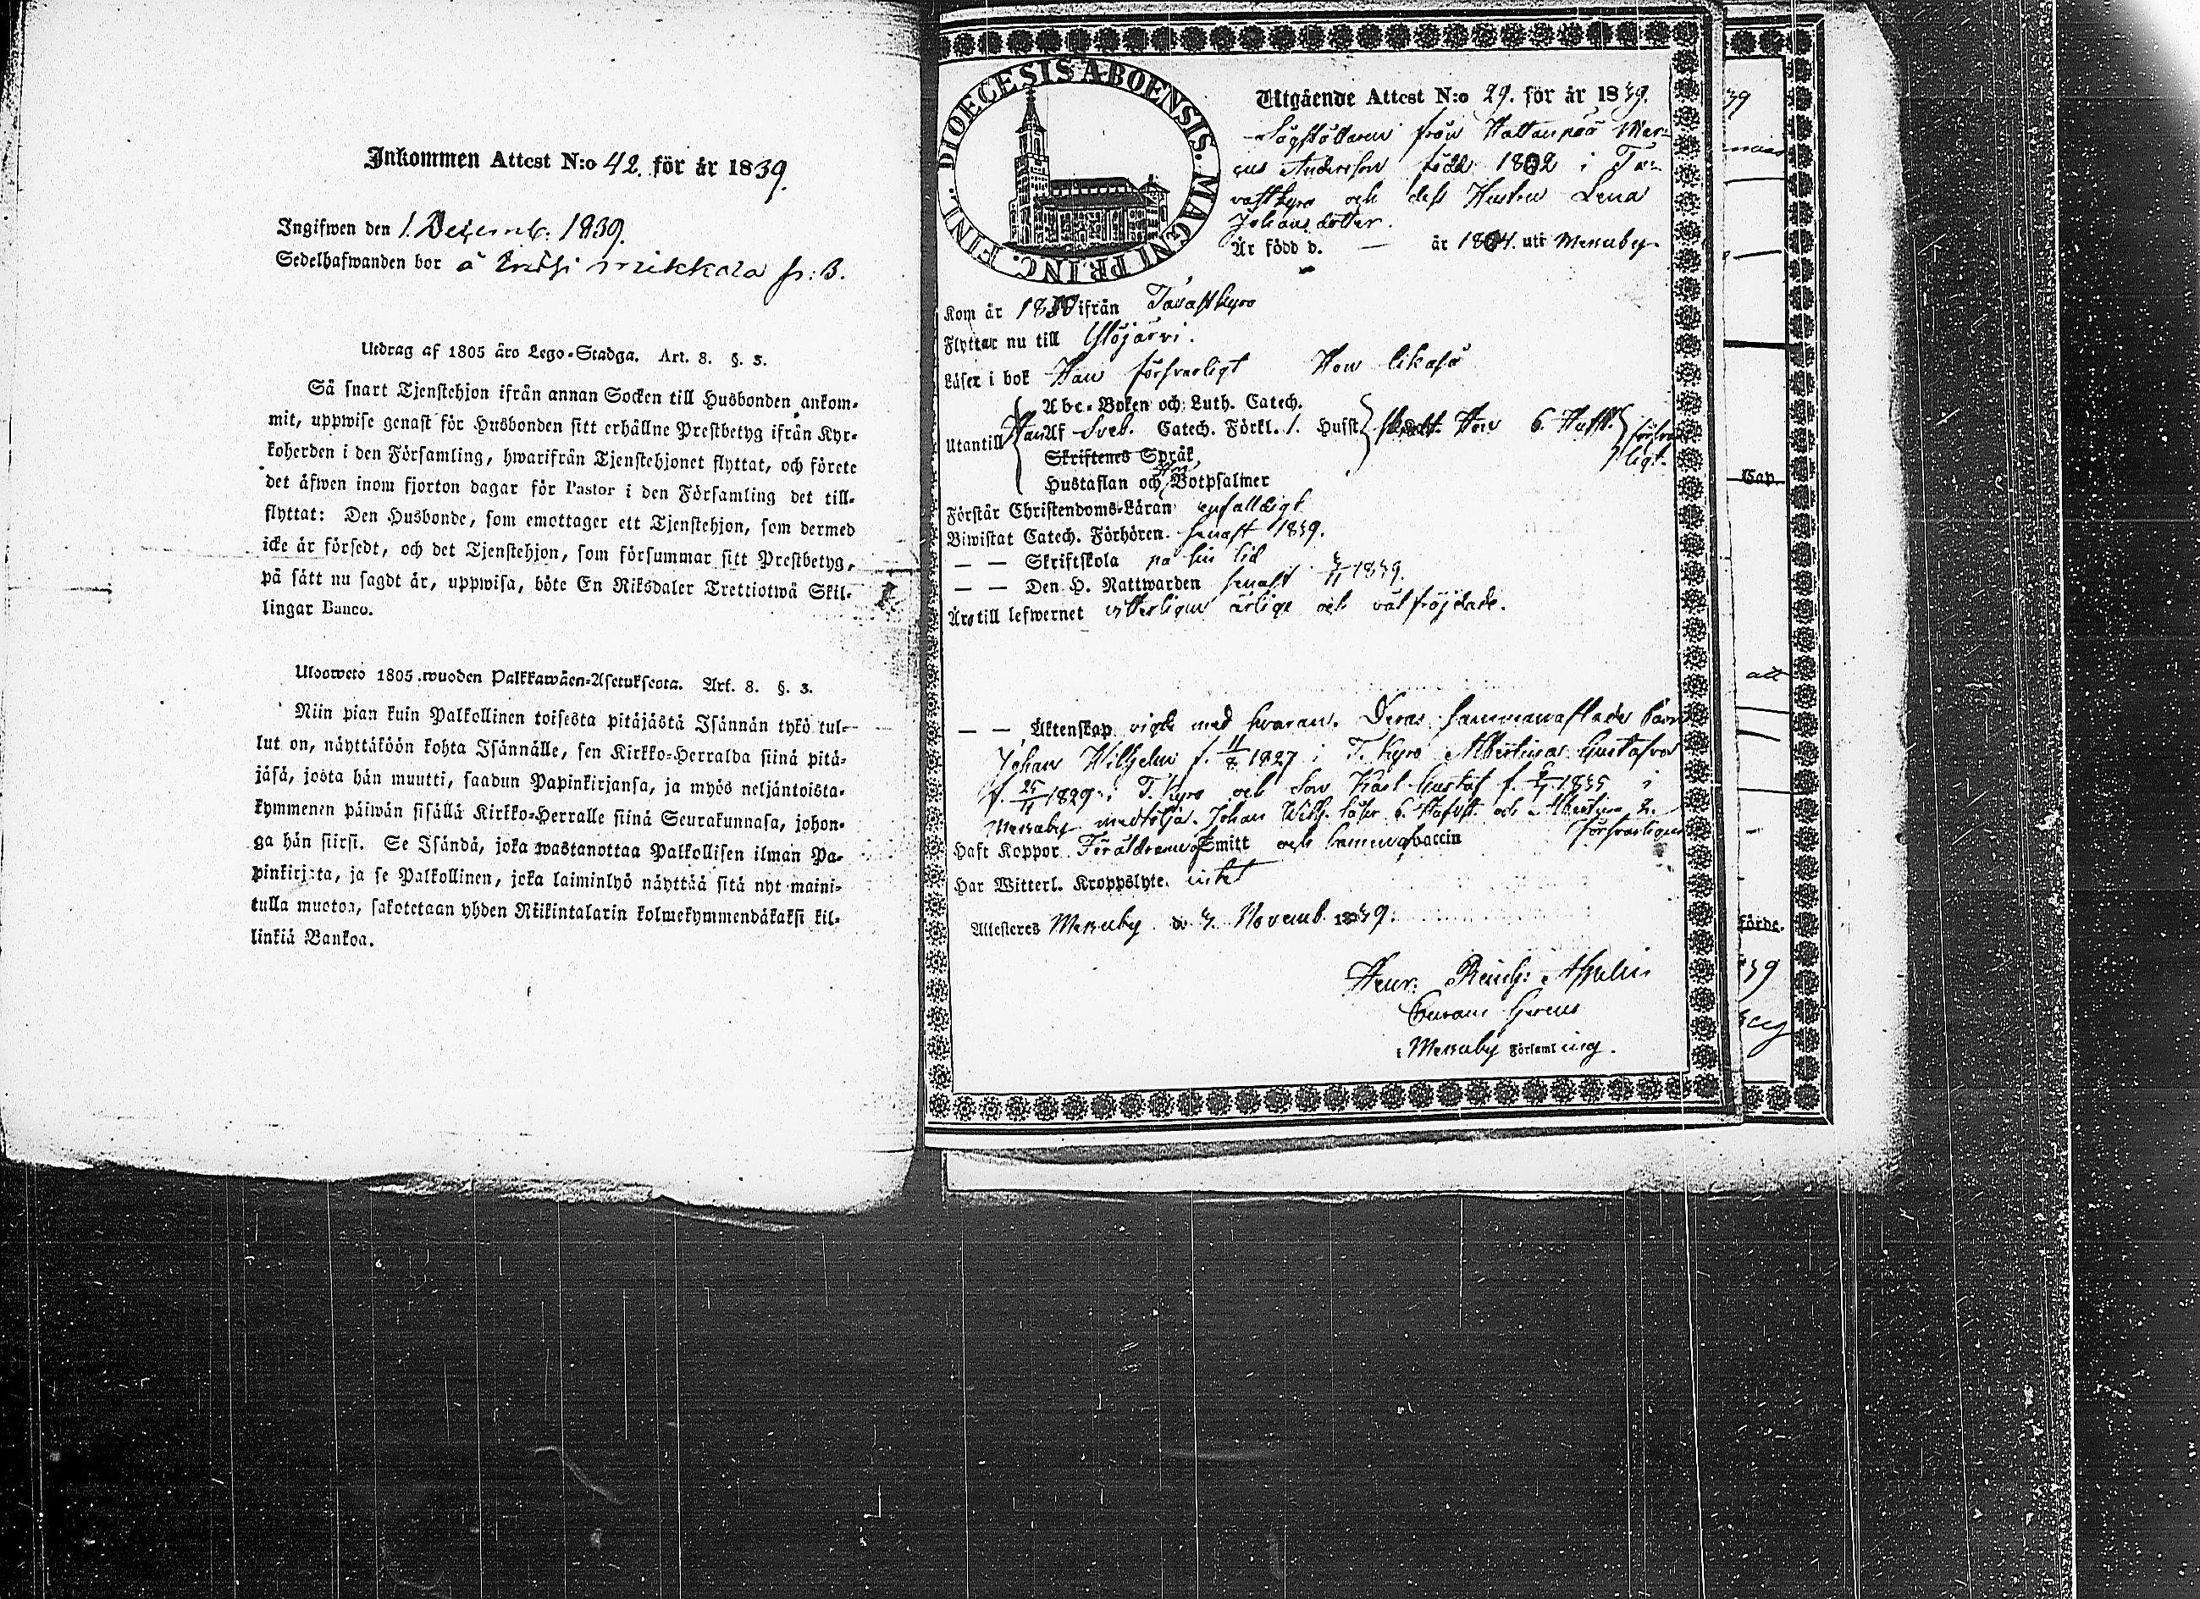 Inkommen Attest N:o 42. för år 1839.
Ingifwen den 1. Decemb. 1839.
Sedelhafwanden bor å mikkola
Utdrag af 1805 års Lego-Stadga. Art. 8. §. 3.
Så snart Tjenstehjon ifrån annan Socken till Husbonden ankom-
mit, uppwise genast för Husbonden sitt erhållne Prestbetyg ifrån Kyr-
koherden i den Församling, hwarifrån Tjenstehjonet flyttat, och förete
det äfwen inom fjorton dagar för Pastor i den Församling det till-
flyttat: Den Husbonde, som emottager ett Tjenstehjon, som dermed
icke är försedt, och det Tjenstehjon, som försummar sitt Prestbetyg,
på sätt nu sagdt är, uppwisa, böte En Riksdaler Trettiotwå Skil-
lingar Banco.
Ulosweto 1805 wuoden Palkkawäen-Asetuksesta. Art. 8. §. 3.
Niin pian kuin Palkollinen toisesta pitäjästä Isännän tykö tul-
lut on, näyttäköön kohta Isännälle, sen Kirkko-Herralda siinä pitä-
jäsä, josta hän muutti, saadun Papinkirjansa, ja myös neljäntoista-
kymmenen päiwän sisällä Kirkko-Herralle siinä Seurakunnasa, johon-
ga hän siirsi. Se Isändä, joka wastanottaa Palkollisen ilman Pa-
pinkirjata, ja se Palkollinen, joka laiminlyö näyttää sitä nyt maini-
tulla muotoa, sakotetaan yhden Riikintalarin kolmekymmendäkaksi kil-
linkiä Bankoa.
DIOECESIS ABOENSIS. MAGNI PRINC. FINL.
Utgående Attest N:o 29. för år 1839.
från Hattanpää Mar-
cus Andersson född 1802 i Ta-
vastkyro och dess Hustru Lena
Johansdotter.
Är född d. — år 1804. uti Messuby
Kom år 18 ifrån Tavastkyro
Flyttar nu till Ylöjärvi.
Läser i bok Han försvarligt Hon likaså
Abc-Boken och Luth. Catech.
Utantill Han Af Sveb. Catech. Förkl. 1. Hufst. Hon 6. Hufst. försvar-
ligt.
Skriftenes Språk
Hustaflan och Botpsalmer
Förstår Christendoms-Läran enfaldigt
Biwistat Catech. Förhören senast 1839.
— — Skriftskola på sin tid
— — Den H. Nattwarden senast 3/11 1839.
Äro till lefwernet ärlige och välfrejdade.
— — Äktenskap vigde med hvaran. Deras sammanaflade barn
Johan Wilhelm f. 11/8 1827 i T. Kyro Albertina Gustafva
f. 25/11 1829 i T. Kyro och Son Karl Gustaf f. 1835 i
Messuby medfölja. Johan Wilh. läser 6. Hufvst. och Albertina 2.
försvarligen
Haft Koppor Föräldrarne af Smitt och barnen af vaccin
Har Witterl. Kroppslyte. intet
Attesteras Messuby d. 3. Novemb. 1839.
Henr: Reinh: Aspelin
Curam Gerens
i Messuby Församling.
39
Cap.
att
förde.
39